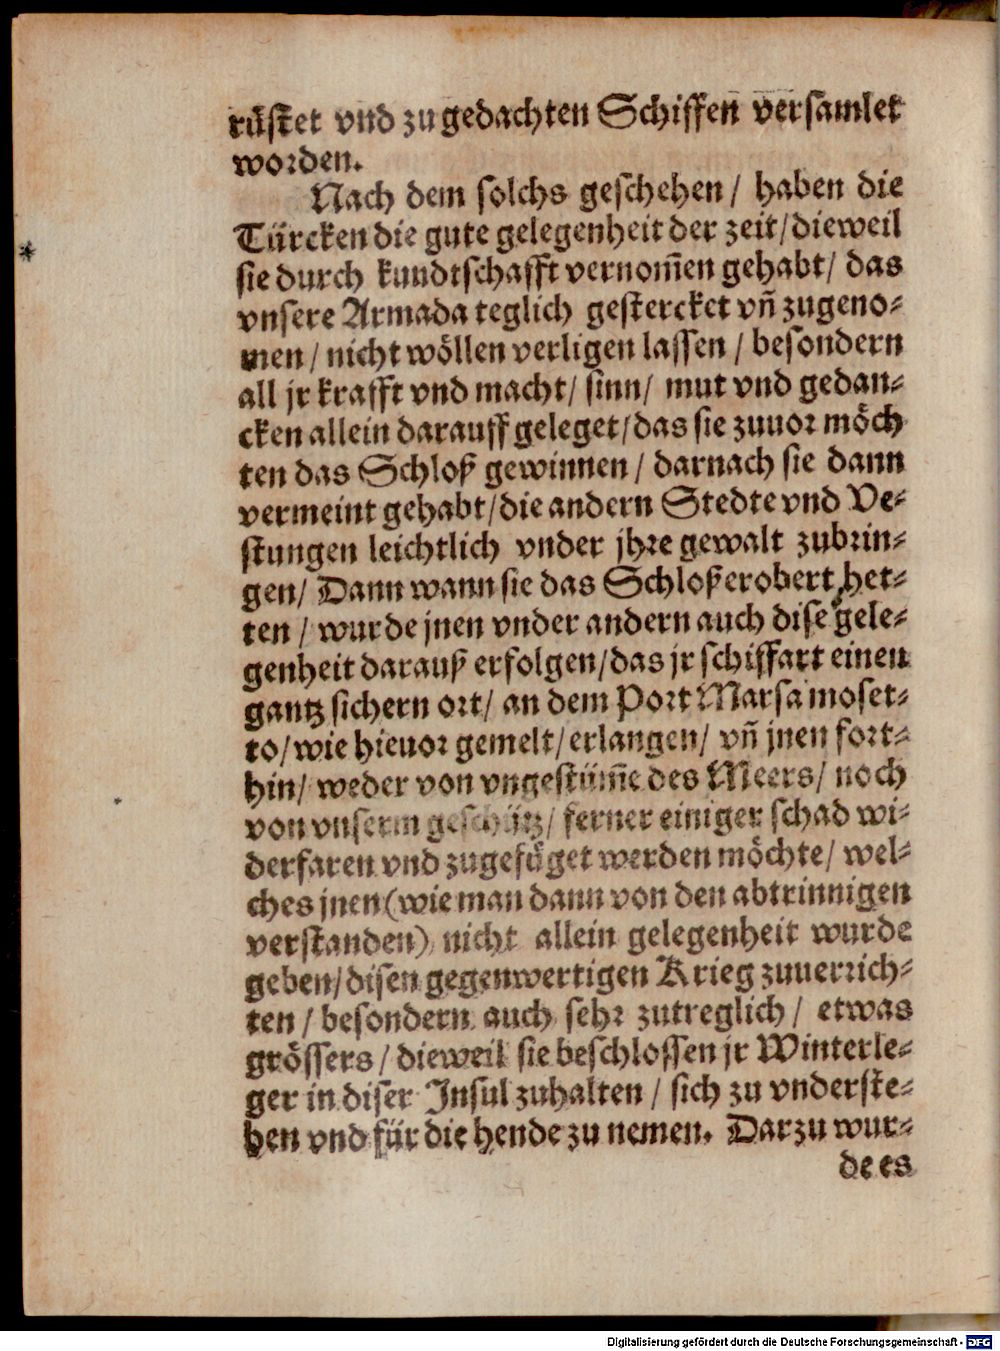 rüstet vnd zu gedachten Schiffen versamlet
worden.
Nach dem solchs geschehen / haben die
Türcken die gute gelegenheit der zeit / dieweil
sie durch kundtschafft vernom̃en gehabt / das
vnsere Armada teglich gestercket vñ zugeno⸗
men / nicht wöllen verligen lassen / besondern
all jr krafft vnd macht / sinn / mut vnd gedan⸗
cken allein darauff geleget / das sie zuuor möch
ten das Schloß gewinnen / darnach sie dann
vermeint gehabt / die andern Stedte vnd Ve⸗
stungen leichtlich vnder jhre gewalt zubrin⸗
gen / Dann wann sie das Schloß erobert het⸗
ten / wurde jnen vnder andern auch dise gele⸗
genheit darauß erfolgen / das jr schiffart einen
gantz sichern ort / an dem Port Marsa moset⸗
to / wie hieuor gemelt / erlangen / vñ jnen fort⸗
hin / weder von vngestüm̃e des Meers / noch
von vnserm geschütz / ferner einiger schad wi⸗
derfaren vnd zugefüget werden möchte / wel⸗
ches jnen (wie man dann von den abtrinnigen
verstanden) nicht allein gelegenheit wurde
geben / disen gegenwertigen Krieg zuuerrich⸗
ten / besondern auch sehr zutreglich / etwas
grössers / dieweil sie beschlossen jr Winterle⸗
ger in diser Insul zuhalten / sich zu vnderste⸗
hen vnd für die hende zu nemen. Darzu wur⸗
de es
Digitalisierung gefördert durch die Deutsche Forschungsgemeinschaft - DFG